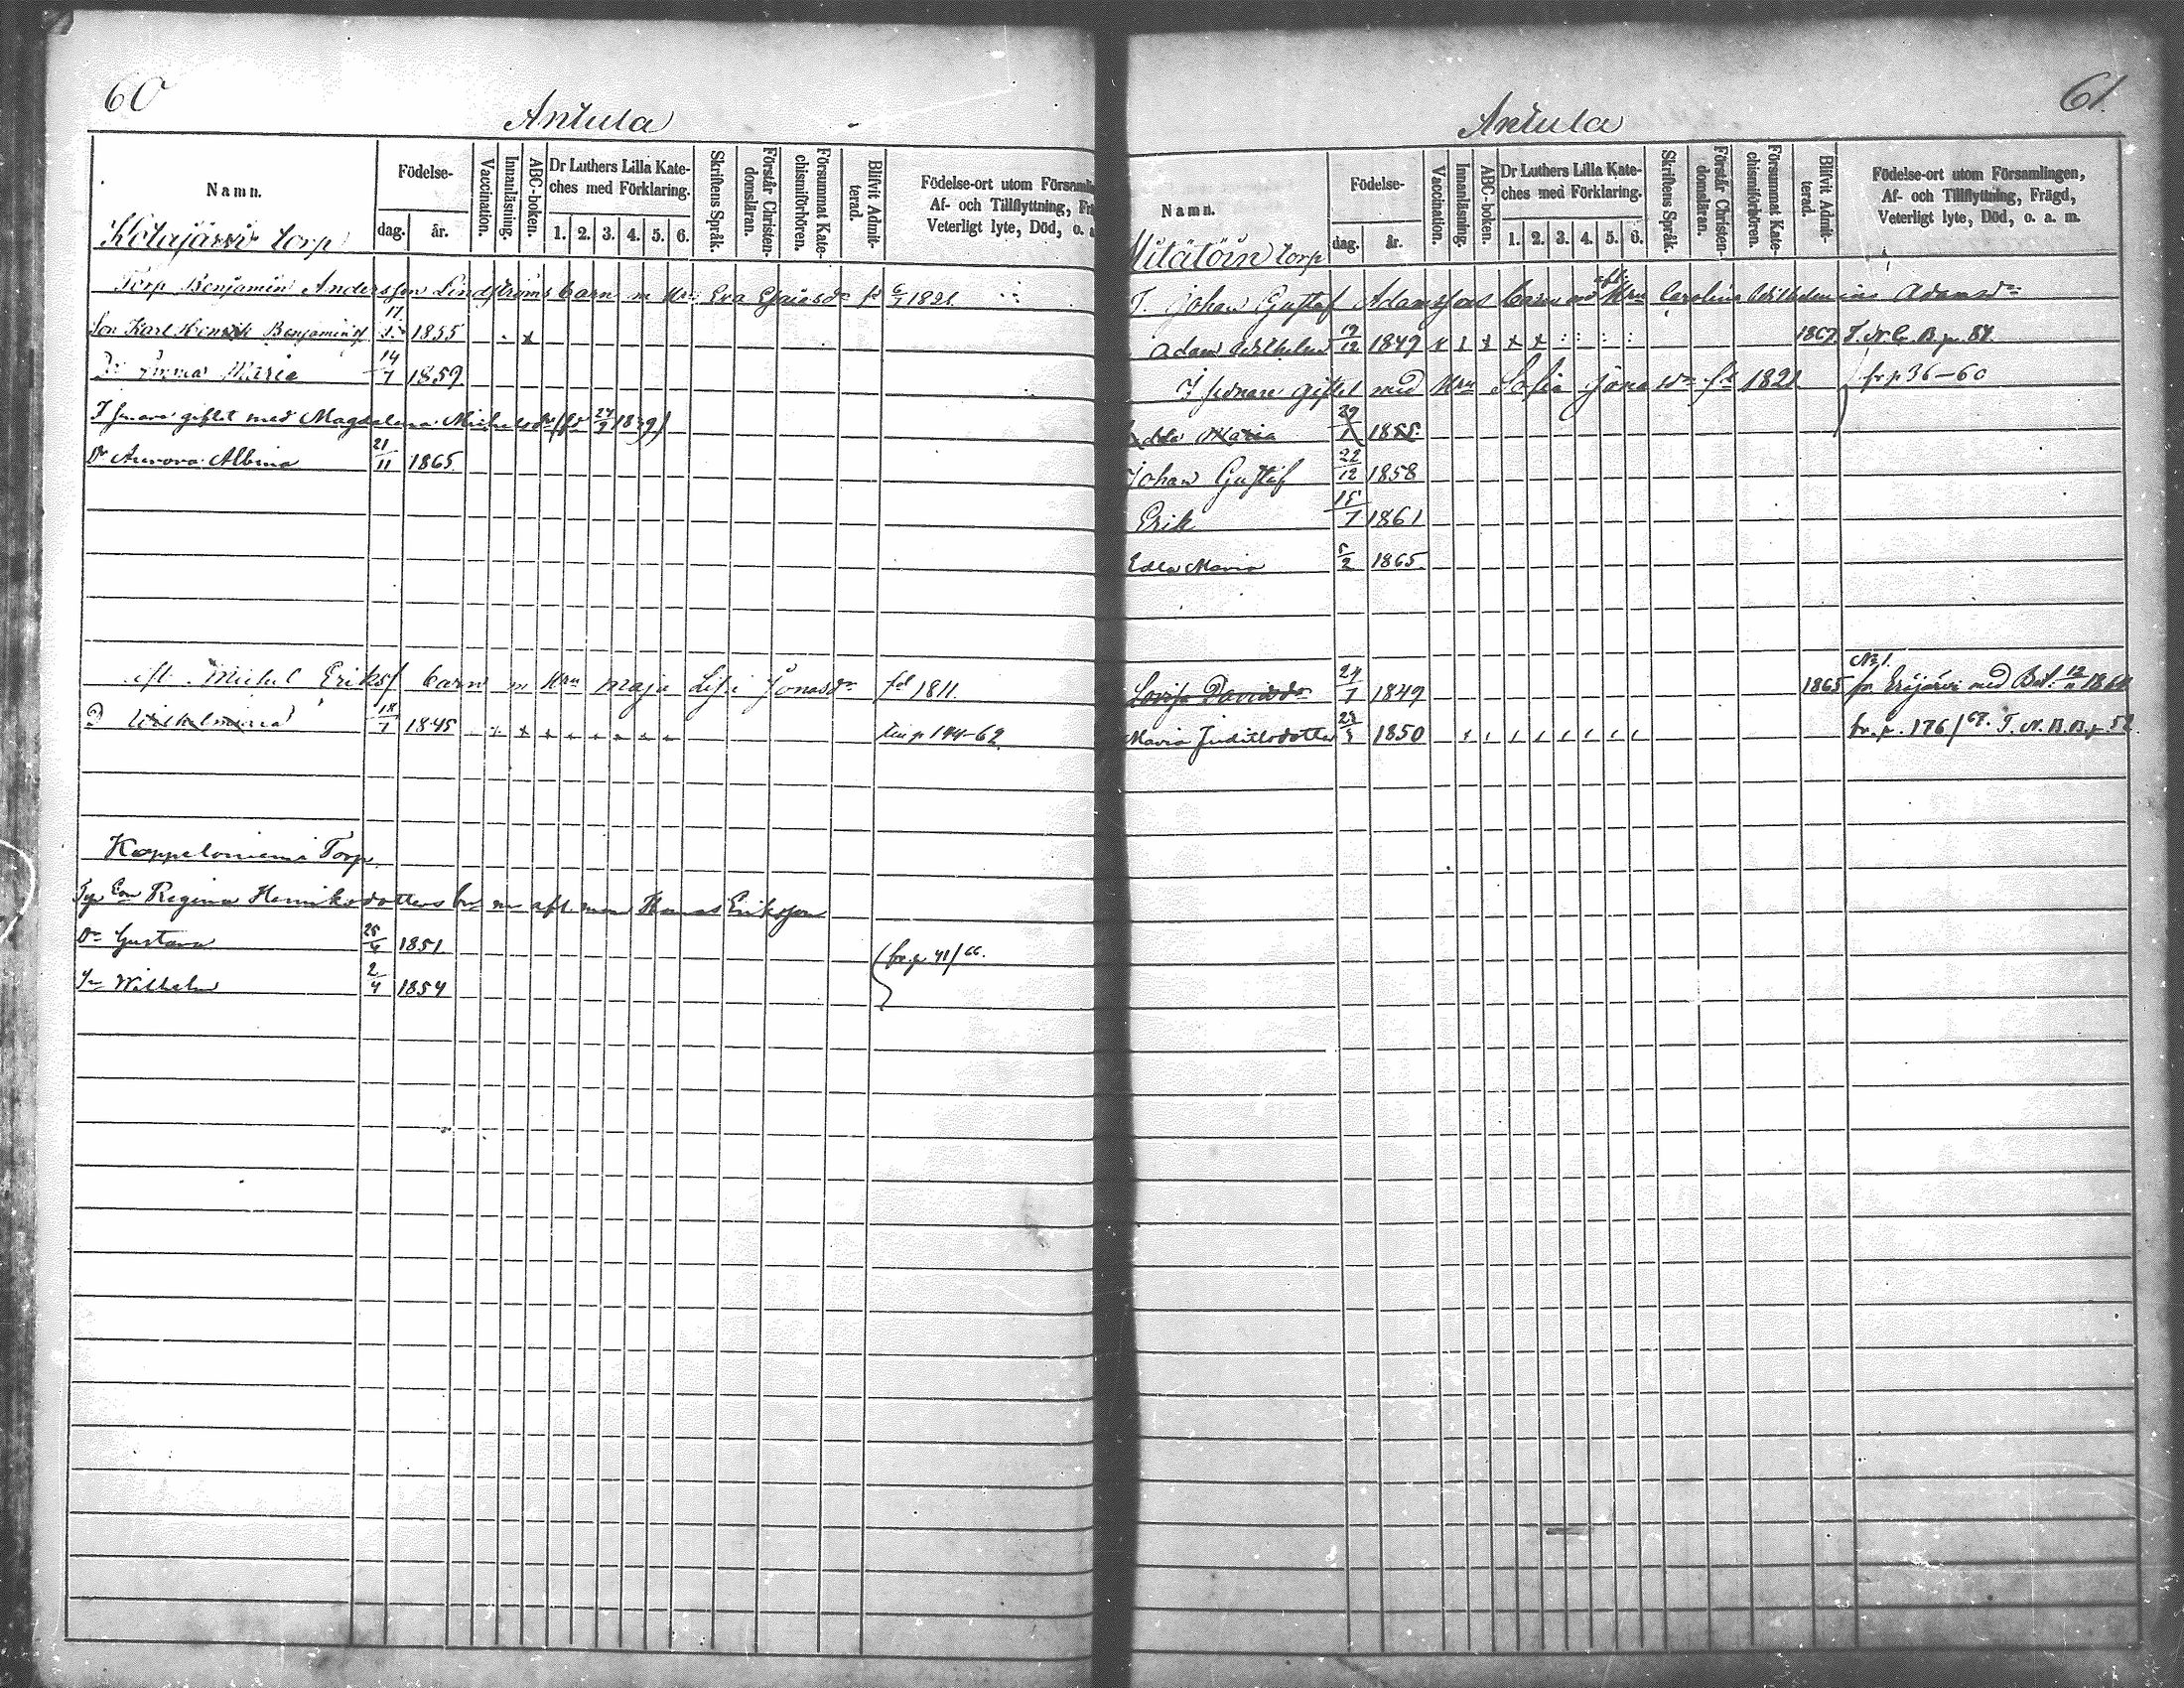 60
Antula
Namn.
Födelse-
dag.
år.
Vaccination.
Innanläsning.
ABC-boken.
Dr Luthers Lilla Kate-
ches med Förklaring.
1. 2. 3. 4. 5. 6.
Skriftens Språk.
Förstår Christen-
domsläran.
Försummat Kate-
chismiförhören.
Blifvit Admit-
terad.
Födelse-ort utom Församlin
Af- och Tillflyttning, Fr
Veterligt lyte, Död, o. a
Kotajärvi torp
Torp Benjamin Andersson Lindströms barn m Hru Eva Esaiasdr fd 6/1 1821.
Son Karl Henrik Benjaminsf 17 1855
Dr Emma Maria 14/7 1859
I senare giftet med Magdalena Michelsdr (fd 1839)
Dr Aurora Albina 21/11 1865
aft. Michel Eriksf barn m Hru Maja Lisa Jonasdr fd 1811.
D Wilhelmina 18/7 1845 p 144-62
Koppeloniemi Torp
Regina Henriksdotters m aft. man Thomas Eriksson
Dr Gustava 25/4 1851
Sn Wilhelm 2/4 1854
fr. p 41/66.
61.
Antula
Namn.
Födelse-
dag.
år.
Vaccination.
Innanläsning.
ABC-boken.
Dr Luthers Lilla Kate-
ches med Förklaring.
1. 2. 3. 4. 5. 6.
Skriftens Språk.
Förstår Christen-
domsläran.
Försummat Kate-
chismiförhören.
Blifvit Admit-
terad.
Födelse-ort utom Församlingen,
Af- och Tillflyttning, Frägd,
Veterligt lyte, Död, o. a. m.
torp
T. Johan Gustaf Adamssons barn md aft. Hru Carolina Wilhelmina Adamsdr
Adam Wilhelm 19/12 1849 1867 T. N. C. B. p. 87
I senare giftet med Hru Sofia Jonasdr fd 1821 fr p 36-60
Edla Maria 29/1 1855
Johan Gustaf 22/12 1858
Erik 15/7 1861
Edla Maria 5/2 1865
Lovisa Davidsdr 24/7 1849 1865 No 1. fr. Eräjärvi med Bet. 1864
Maria Judithsdotter 1850 fr. p. 176/67. T. N. B. B. p 52